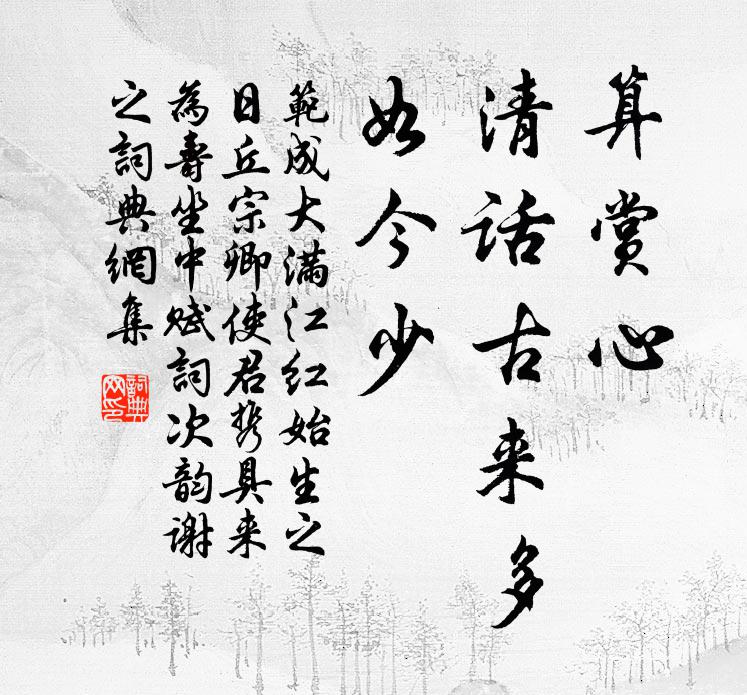 算赏心
清话古来多
如今少
範成大满江红始生之
日丘宗卿使君携具来
為壽坐中赋詞次韵谢
之詞典網集
詞典網印